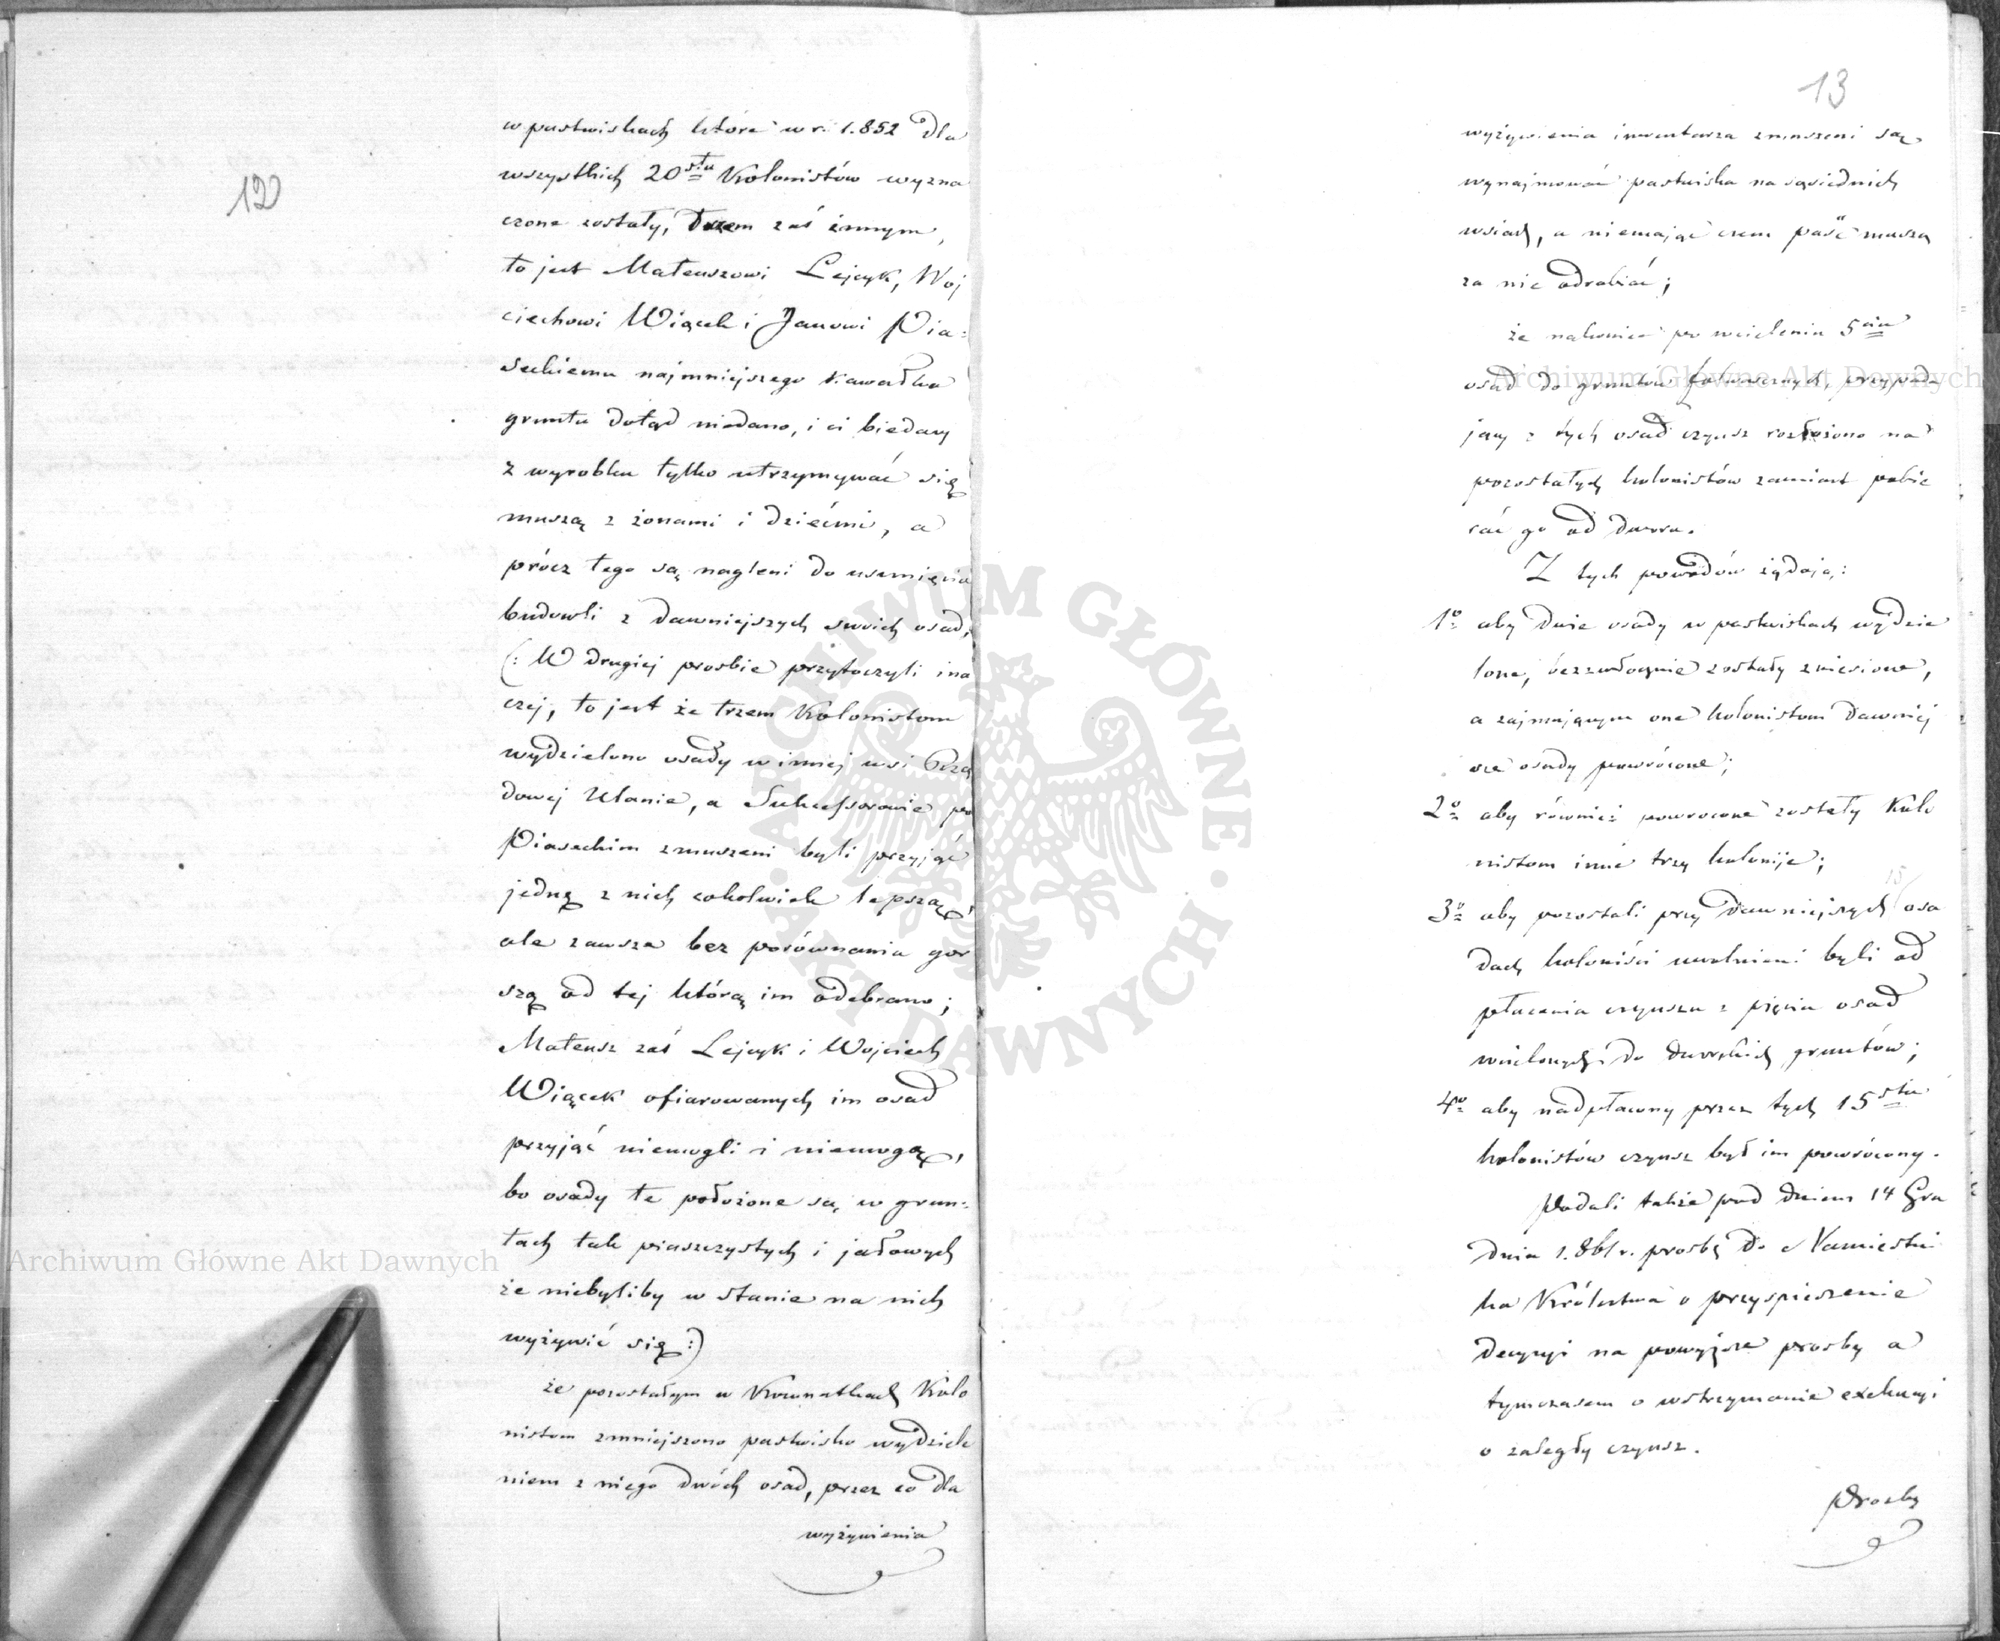 12
w pastwiskach które w r. 1.852 dla
wszystkich 20stu Kolonistów wyzna
czone zostały, trzem zaś innym,
to jest Mateuszowi Lejcyk, Woj
ciechowi Wiącek i Janowi Pia=
seckiemu najmniejszego kawałka
gruntu dotąd niedano, i ci biedacy
z wyrobku tylko utrzymywać się
muszą z żonami i dziećmi, a
prócz tego są nagleni do usunięcia
budowli z dawniejszych swoich osad,
(: W drugiej prosbie przytoczyli ina
czej, to jest że trzem Kolonistom
wydzielono osady w innej wsi Rzą
dowej Ulanie, a Sukcessorowie po
Piaseckim zmuszeni byli przyjąć
jedną z nich cokolwiek lepszą,
ale zawsze bez porównania gor
szą od tej którą im odebrano;
Mateusz zaś Lejcyk i Wojciech
Wiącek ofiarowanych im osad
przyjąć niemogli i niemogą,
bo osady te położone są w grun=
tach tak piaszczystych i jałowych
że niebyliby w stanie na nich
wyżywić się :)
że pozostałym w Kownatkach Kolo
nistom zmniejszono pastwisko wydziele
niem z niego dwóch osad, przez co dla
wyżywienia
13
wyżywienia inwentarza zmuszeni są
wynajmować pastwiska na sąsiednich
wsiach, a niemając czem paść muszą
za nie odrabiać;
że nakoniec po wcieleniu 5ciu
osad do gruntów folwarcznych, przypada
jący z tych osad czynsz rozłożono na
pozostałych kolonistów zamiast pobie
rać go od dworu.
Z tych powodów żądają:
1o aby dwie osady w pastwiskach wydzie
lone, bezzwłocznie zostały zniesione,
a zajmującym one kolonistom dawniej
sze osady powrócone;
2o aby również powrócone zostały Kolo
nistom inne trzy kolonije;
3o aby pozostali przy dawniejszych 15/ osa
dach koloniści uwolnieni byli od
płacenia czynszu z pięciu osad
wcielonych do dworskich gruntów;
4o aby nadpłacony przez tych 15stu
kolonistów czynsz był im powrócony.
Podali także pod dniem 14 Gru
dnia 1.861 r. prosbę do Namiestni
ka Królestwa o przyspieszenie
decyzyi na powyższe prosby a
tymczasem o wstrzymanie exekucyi
o zaległy czynsz.
Prosby
Archiwum Główne Akt Dawnych
Archiwum Główne Akt Dawnych
ARCHIWUM GŁÓWNE · AKT DAWNYCH ·